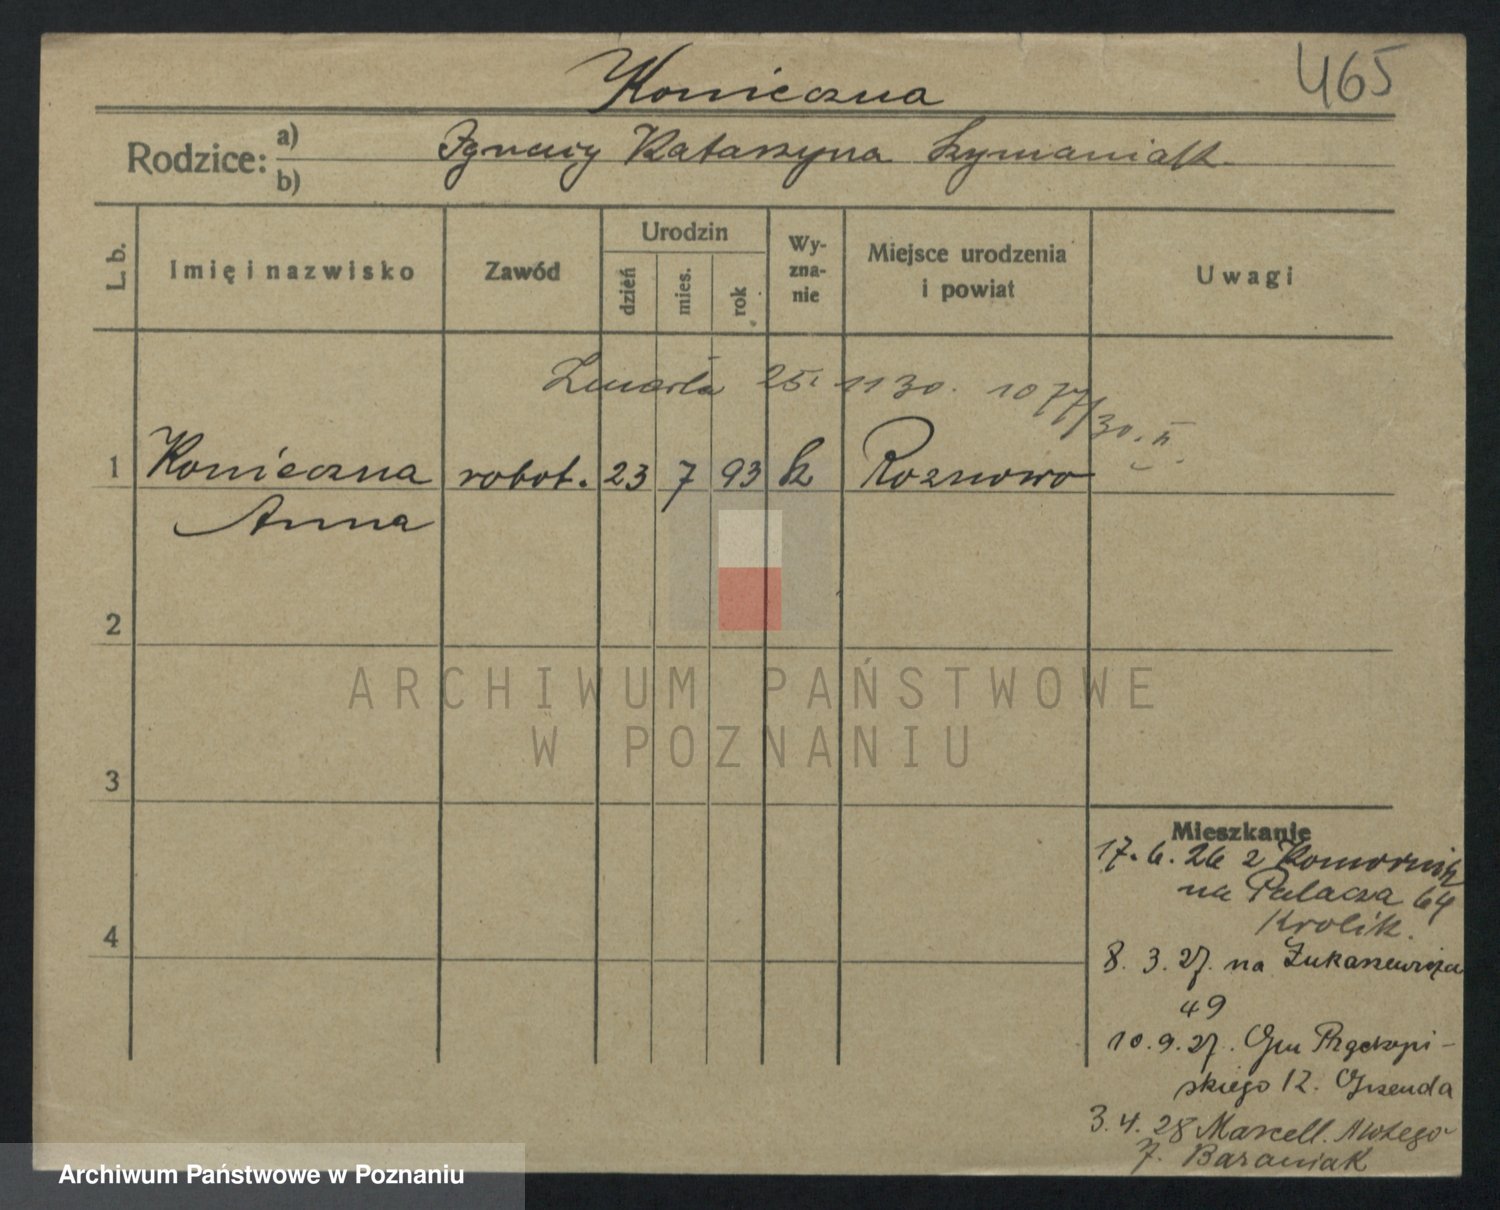 Konieczna
465
Rodzice: a) b)
Ignacy Katarzyna Szymaniak
L. b.
Imię i nazwisko
Zawód
Urodzin
dzień
mies.
rok
Wy-
zna-
nie
Miejsce urodzenia
i powiat
Uwagi
Zmarła 25. 11 30. 1077/30. II
1 Konieczna robot. 23 7 93 k Roznowo
Anna
2
ARCHIWUM PAŃSTWOWE
W POZNANIU
3
Mieszkanie
17. 6. 26 z Komornik
na Palacza 64
Krolik.
4
8. 3. 27. na Łukaszewicza
49
10. 9. 27.
skiego 12. Grzenda
3. 4. 28 Marcell.
7. Baraniak
Archiwum Państwowe w Poznaniu